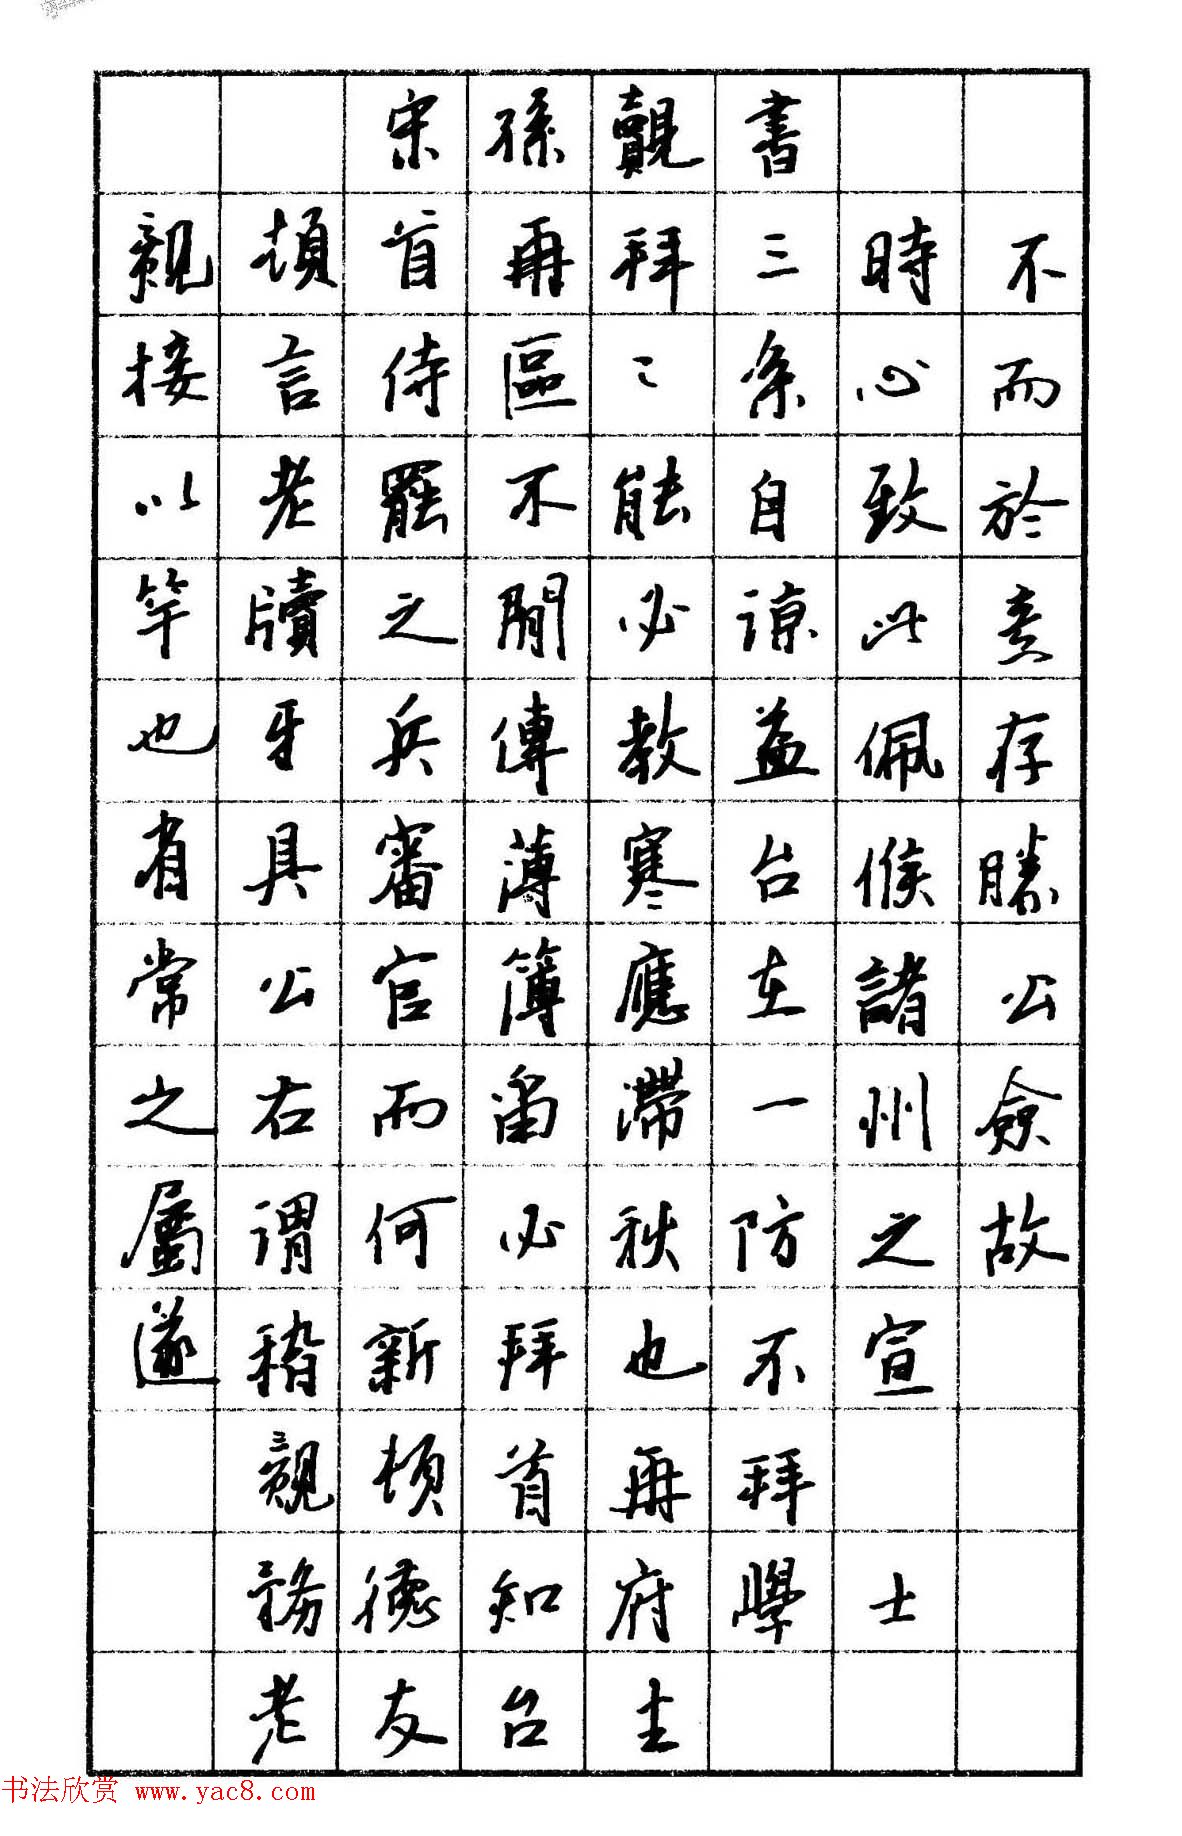 宋孫覿書
覿頓首再拜三時不
接言侍區〻系心而
以老罷不能自致於
竿牘之間必諒此意
也牙兵傳教益佩存
省具審薄寒台候勝
常公官簿應在諸公
之右而留滯一州僉
屬謂何必秋防之故
遂稽新拜也不宣
覿頓首再拜
務德知府學士
老友台坐
书法欣赏 www.yac8.com